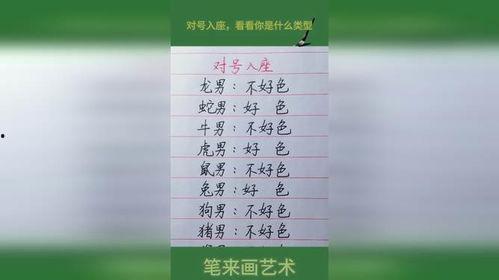 对号入座，看看你是什么类型
对号入座
龙男：不好色
蛇男：好 色
牛男：不好色
虎男：好 色
鼠男：不好色
兔男：好 色
狗男：不好色
猪男：不好色
笔来画艺术